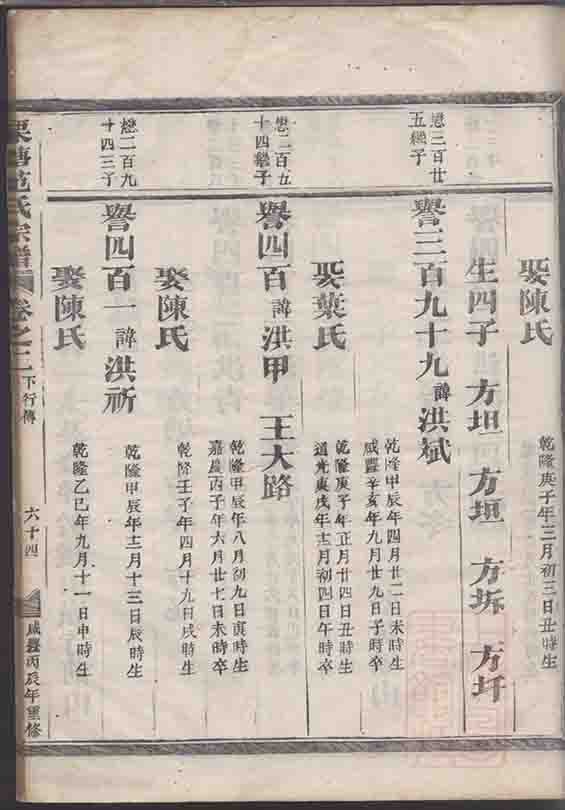 娶陳氏
乾隆庚子年三月初三日丑時生
生四子 方坦 方垣 方坼 方圩
懋三百廿五繼子
譽三百九十九諱洪斌
乾隆甲辰年四月廿一日未時生
咸豐辛亥年九月廿九日子時卒
娶葉氏
乾隆庚子年正月廿四日丑時生
道光庚戌年十二月初四日午時卒
懋二百五十四繼子
譽四百諱洪甲 王大路
乾隆甲辰年八月初九日寅時生
嘉慶丙子年六月廿七日未時卒
娶陳氏
乾隆壬子年四月十九日戌時生
懋二百九十四三子
譽四百一諱洪祈
乾隆甲辰年十二月十三日辰時生
娶陳氏
乾隆乙巳年九月十一日申時生
范氏宗譜 卷之三 下行傳 六十四 咸豐丙辰年重修